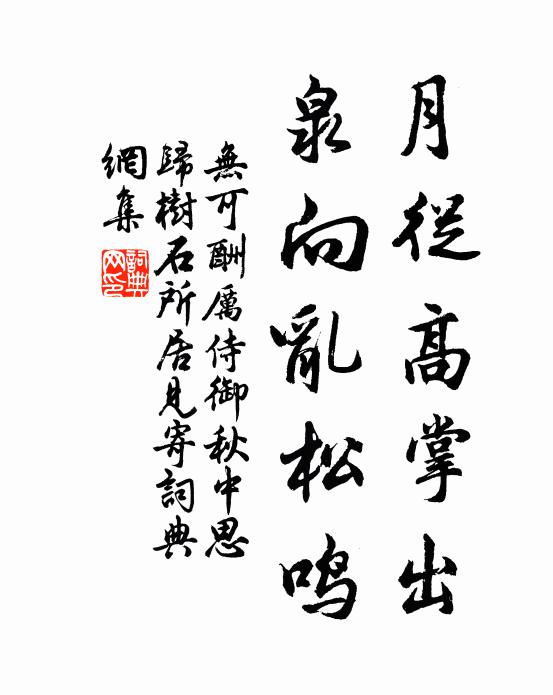 月從高掌出
泉向亂松鳴
無可酬厲侍御秋中思
歸樹石所居見寄詞典
網集
詞典網印